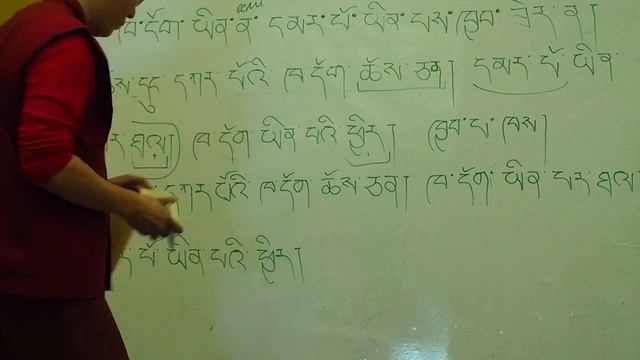 ཁ་དོག་ཡིན་ན་དམར་པོ་ཡིན་པས་ཁྱབ་ཟེར་ན།
ཆོས་དུང་དཀར་པོའི་ཁ་དོག་ཆོས་ཅན། དམར་པོ་ཡིན་
ར་ཐལ། ཁ་དོག་ཡིན་པའི་ཕྱིར། ཁྱབ་པ་ཁས།
དཀར་པོའི་ཁ་དོག་ཆོས་ཅན། ཁ་དོག་ཡིན་པར་ཐལ།
ར་པོ་ཡིན་པའི་ཕྱིར།